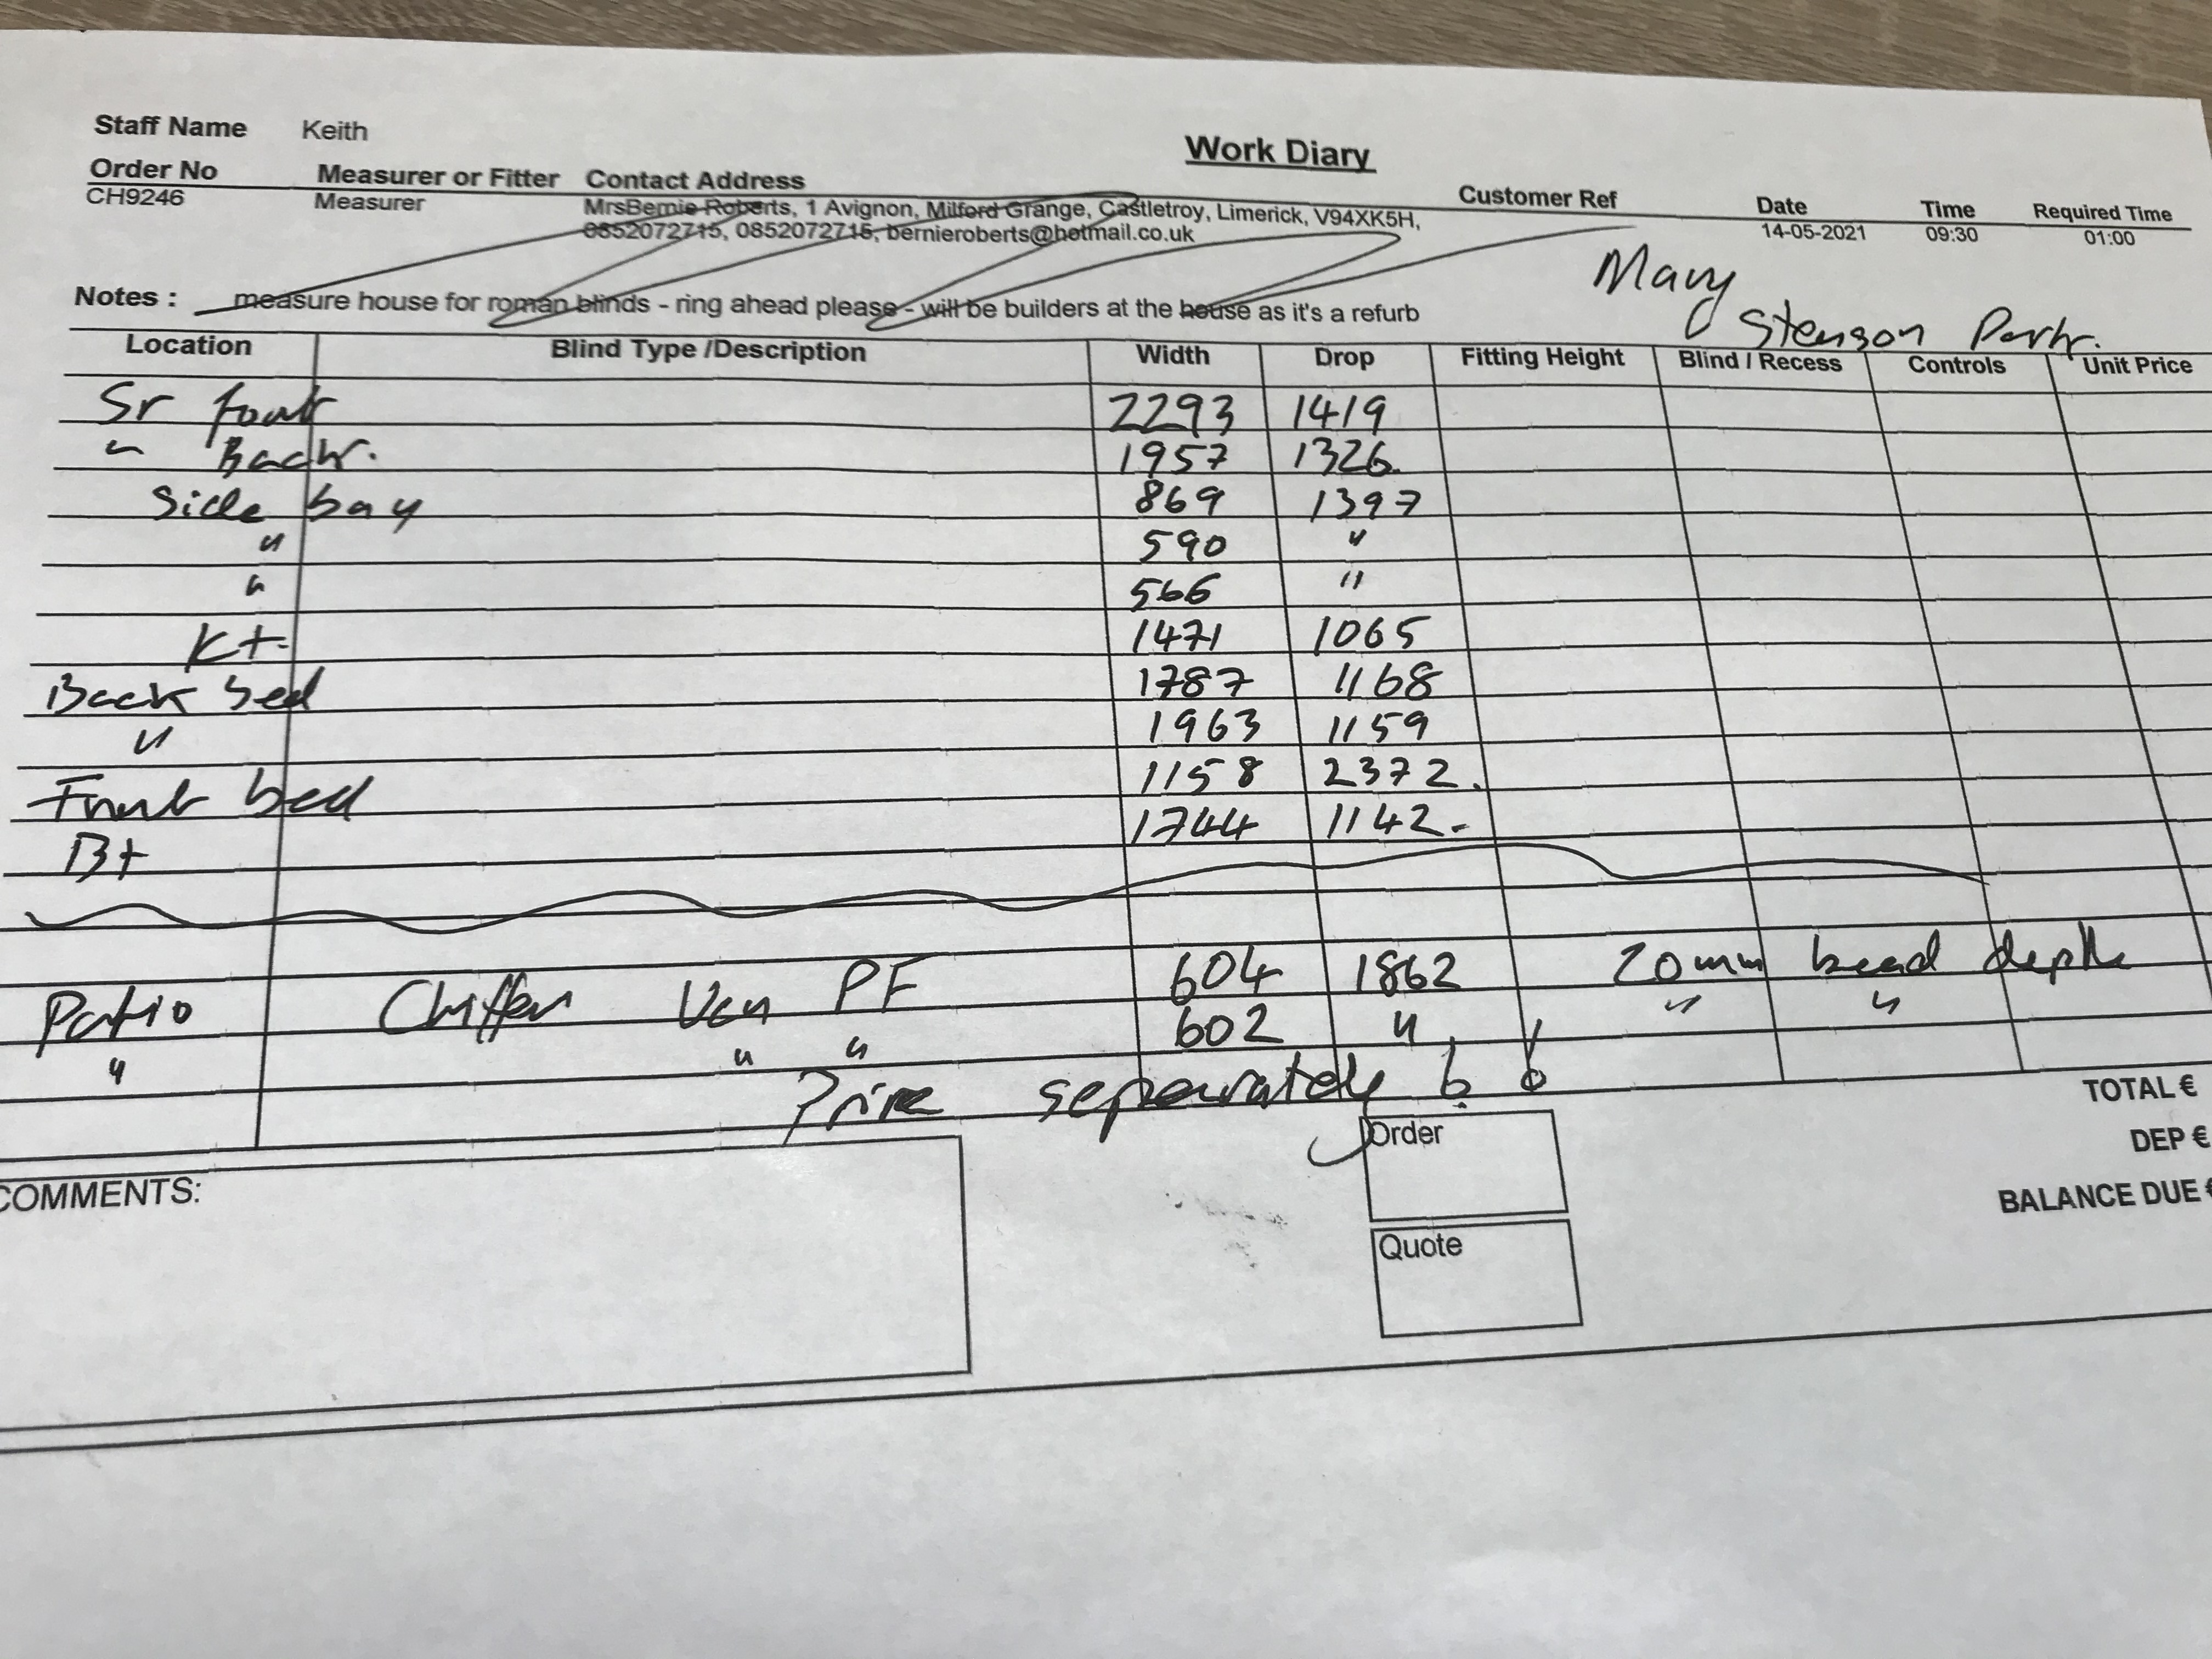 Staff Name Keith
Work Diary
Order No Measurer or Fitter Contact Address Customer Ref Date Time Required Time
CH9246 Measurer MrsBernie Roberts, 1 Avignon, Milford Grange, Castletroy, Limerick, V94XK5H, 14-05-2021 09:30 01:00
0852072715, 0852072715, bernieroberts@hotmail.co.uk
Mary
Notes : measure house for roman blinds - ring ahead please - will be builders at the house as it's a refurb
Stenson Park.
Location Blind Type /Description Width Drop Fitting Height Blind / Recess Controls Unit Price
Sr front 2293 1419
" Back. 1957 1326.
Side bay 869 1397
" 590 "
" 566 "
Kt 1471 1065
Back bed 1787 1168
" 1963 1159
Front bed 1158 2372.
Bt 1744 1142-
Patio Chiffon Ven PF 604 1862 20mm bead depth
" " " 602 " " "
Price separately !
TOTAL €
Order
DEP €
COMMENTS:
BALANCE DUE €
Quote